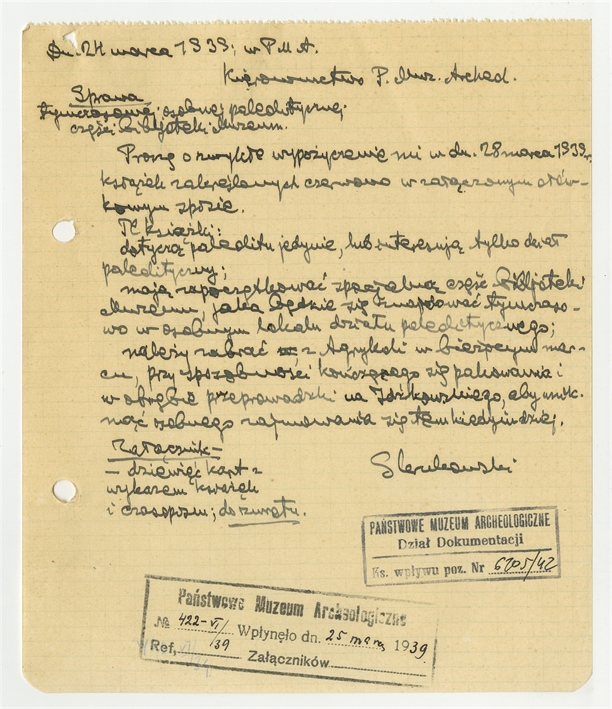 Dn. 24 marca 1939; w P.M.A.
Kierownictwo P. Muz. Archeol.
Sprawa
tymczasowej osobnej paleolitycznej
części bibljoteki Muzeum.
Proszę o zwykłe wypożyczenie mi w dn. 28 marca 1939 r.
książek zakreślanych czerwono w załączonym ołów-
kowym spisie.
Te książki:
dotyczą paleolitu jedynie, lub interesują tylko dział
paleolityczny;
mają zapoczątkować specjalną część bibljoteki
Muzeum, jaka będzie się znajdować tymczaso-
wo w osobnym lokalu działu paleolitycznego;
należy zabrać z Agrykoli w bieżącym mar-
cu, przy sposobności kończącego się pakowania i
w obrębie przeprowadzki na Józikowskiego, aby unik-
nąć osobnego zajmowania się tem kiedyindziej.
Załącznik =
= dziewięć kart z
wykazem książek
i czasopism; do zwrotu.
PAŃSTWOWE MUZEUM ARCHEOLOGICZNE
Dział Dokumentacji
Ks. wpływu poz. Nr 6205/42
Państwowe Muzeum Archeologiczne
№ 422-VI/39 Wpłynęło dn. 25 marca 1939
Ref, Załączników